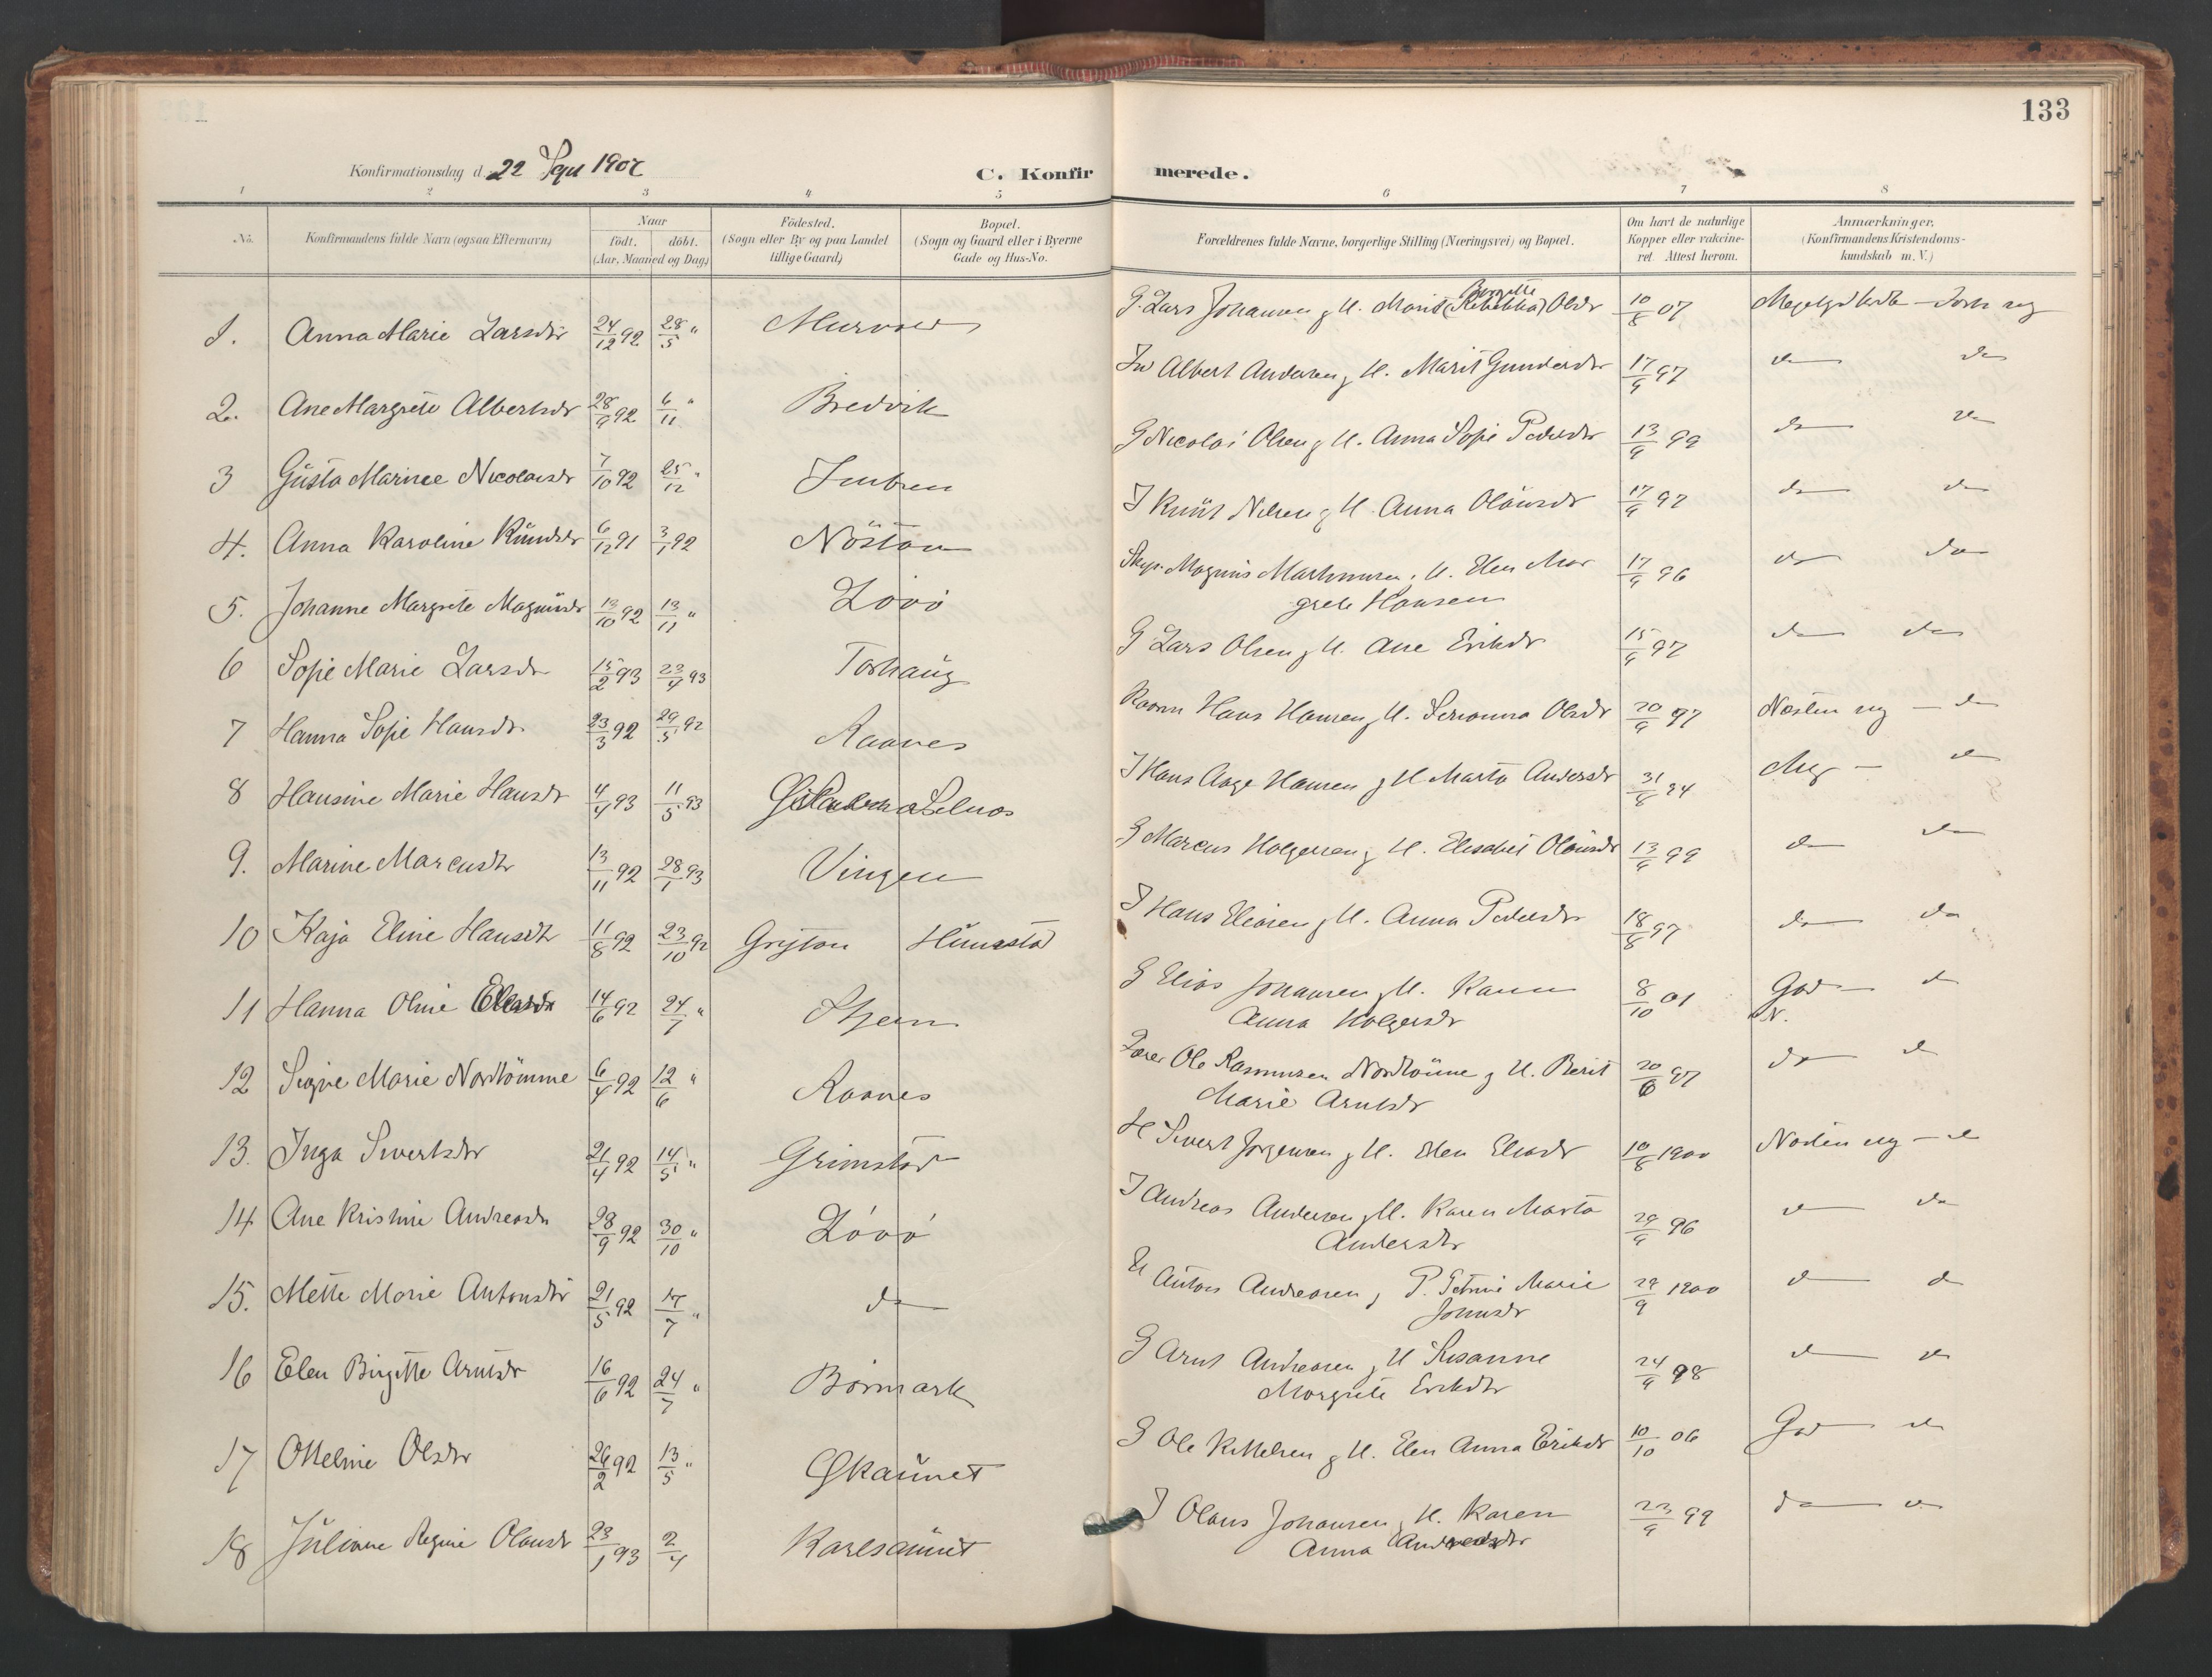 133
Konfirmationsdag d. 22 Sept 1907
C. Konfir merede.
1 2 3 4 5 6 7 8
No.
Konfirmandens fulde Navn (ogsaa Efternavn)
Naar
födt. döbt.
(Aar, Maaned og Dag)
Födested.
(Sogn eller By og paa Landet
tillige Gaard)
Bopæl.
(Sogn og Gaard eller i Byerne
Gade og Hus-No.
Forældrenes fulde Navne, borgerlige Stilling (Næringsvei) og Bopæl.
Om havt de naturlige
Kopper eller vakcine-
ret Attest herom.
Anmærkninger,
(Konfirmandens Kristendoms-
kundskab m. V.)
1. Anna Marie Larsdtr 24/12 92 28/5 " G. Lars Johansen g H. Marit (Rebekka) Olsdr 10/8 07
Bergitte
2. Ane Margrete Albertsdr 28/9 92 6/11 " Bredvik Albert Andersen g H. Marit Gundersdr 17/9 97 do do
3 Gusta Marine Nicolaisdr 7/10 92 25/12 " G Nicolai Olsen g H. Anna Sofie Pedersdr 13/9 99 do do
4. Anna Karoline Knudsdr 6/12 91 3/1 92 Nöstan I Knut Nilsen g H. Anna Olausdr 17/9 97 do do
5. Johanne Margrete Magnusdr 13/10 92 13/11 " Lövö Magnus Martinusen g H. Elen Mar
grete Hansen 17/9 96 do do
6 Sofie Marie Larsdr 15/2 93 23/4 93 Torhaug G Lars Olsen g H. Ane Eriksdr 15/9 97 do do
7 Hanna Sofie Hansdr 23/3 92 29/5 92 Raanes Hans Hansen g H. Serianna Olsdr 20/9 97 Næsten mg — do
8 Hansine Marie Hansdr 4/4 93 11/5 93 Selnes I Hans Aage Hansen g H Marta Andersdr 31/8 94 Meg — do
9. Marine Marcusdtr 13/11 92 28/1 93 Vingen G Marcus Holgersen g H. Elisabet Olausdr 13/9 99 do do
10 Kaja Eline Hansdtr 11/8 92 23/10 92 Gryton Hunestad I Hans Eliasen g H. Anna Pedersdr 18/8 97 do do
11 Hanna Oline Eliasdr 14/6 92 24/7 " Stjern G Elias Johansen g H. Karen
Anna Holgersdr 8/10 01 God — d
N.
12 Signe Marie Nordtömme 6/4 92 12/6 " Raanes Lærer Ole Rasmussen Nordtömme g H. Berit
Marie Arntsdr 20/6 97 do d
13. Inga Sivertsdtr 21/4 92 14/5 " Grimstad H Sivert Jörgensen g H. Elen Eliasdr 10/8 1900 Næsten mg — d
14 Ane Kristine Andreasdr 28/9 92 30/10 " Lövö I Andreas Andersen g H. Karen Marta
Andersdtr 29/9 96 d do
15. Mette Marie Antonsdtr 21/5 92 17/7 " do Anton Andreasen g P. Petrine Marie
Johnsdr 29/9 1900 d d
16 Elen Birgitte Arntsdr 16/6 92 24/7 " Börmark G Arnt Andreasen g H Susanne
Margrete Eriksdtr 24/9 98 d do
17 Otteline Olsdtr 26/2 92 13/5 " Skaunet G Ole Kittelsen g H. Elen Anna Eriksdr 10/10 06 God d
18 Julianne Regine Olausdr 23/1 93 2/4 Karlsaunet I Olaus Johansen g H. Karen
Anna Andreasdtr 23/9 99 do d